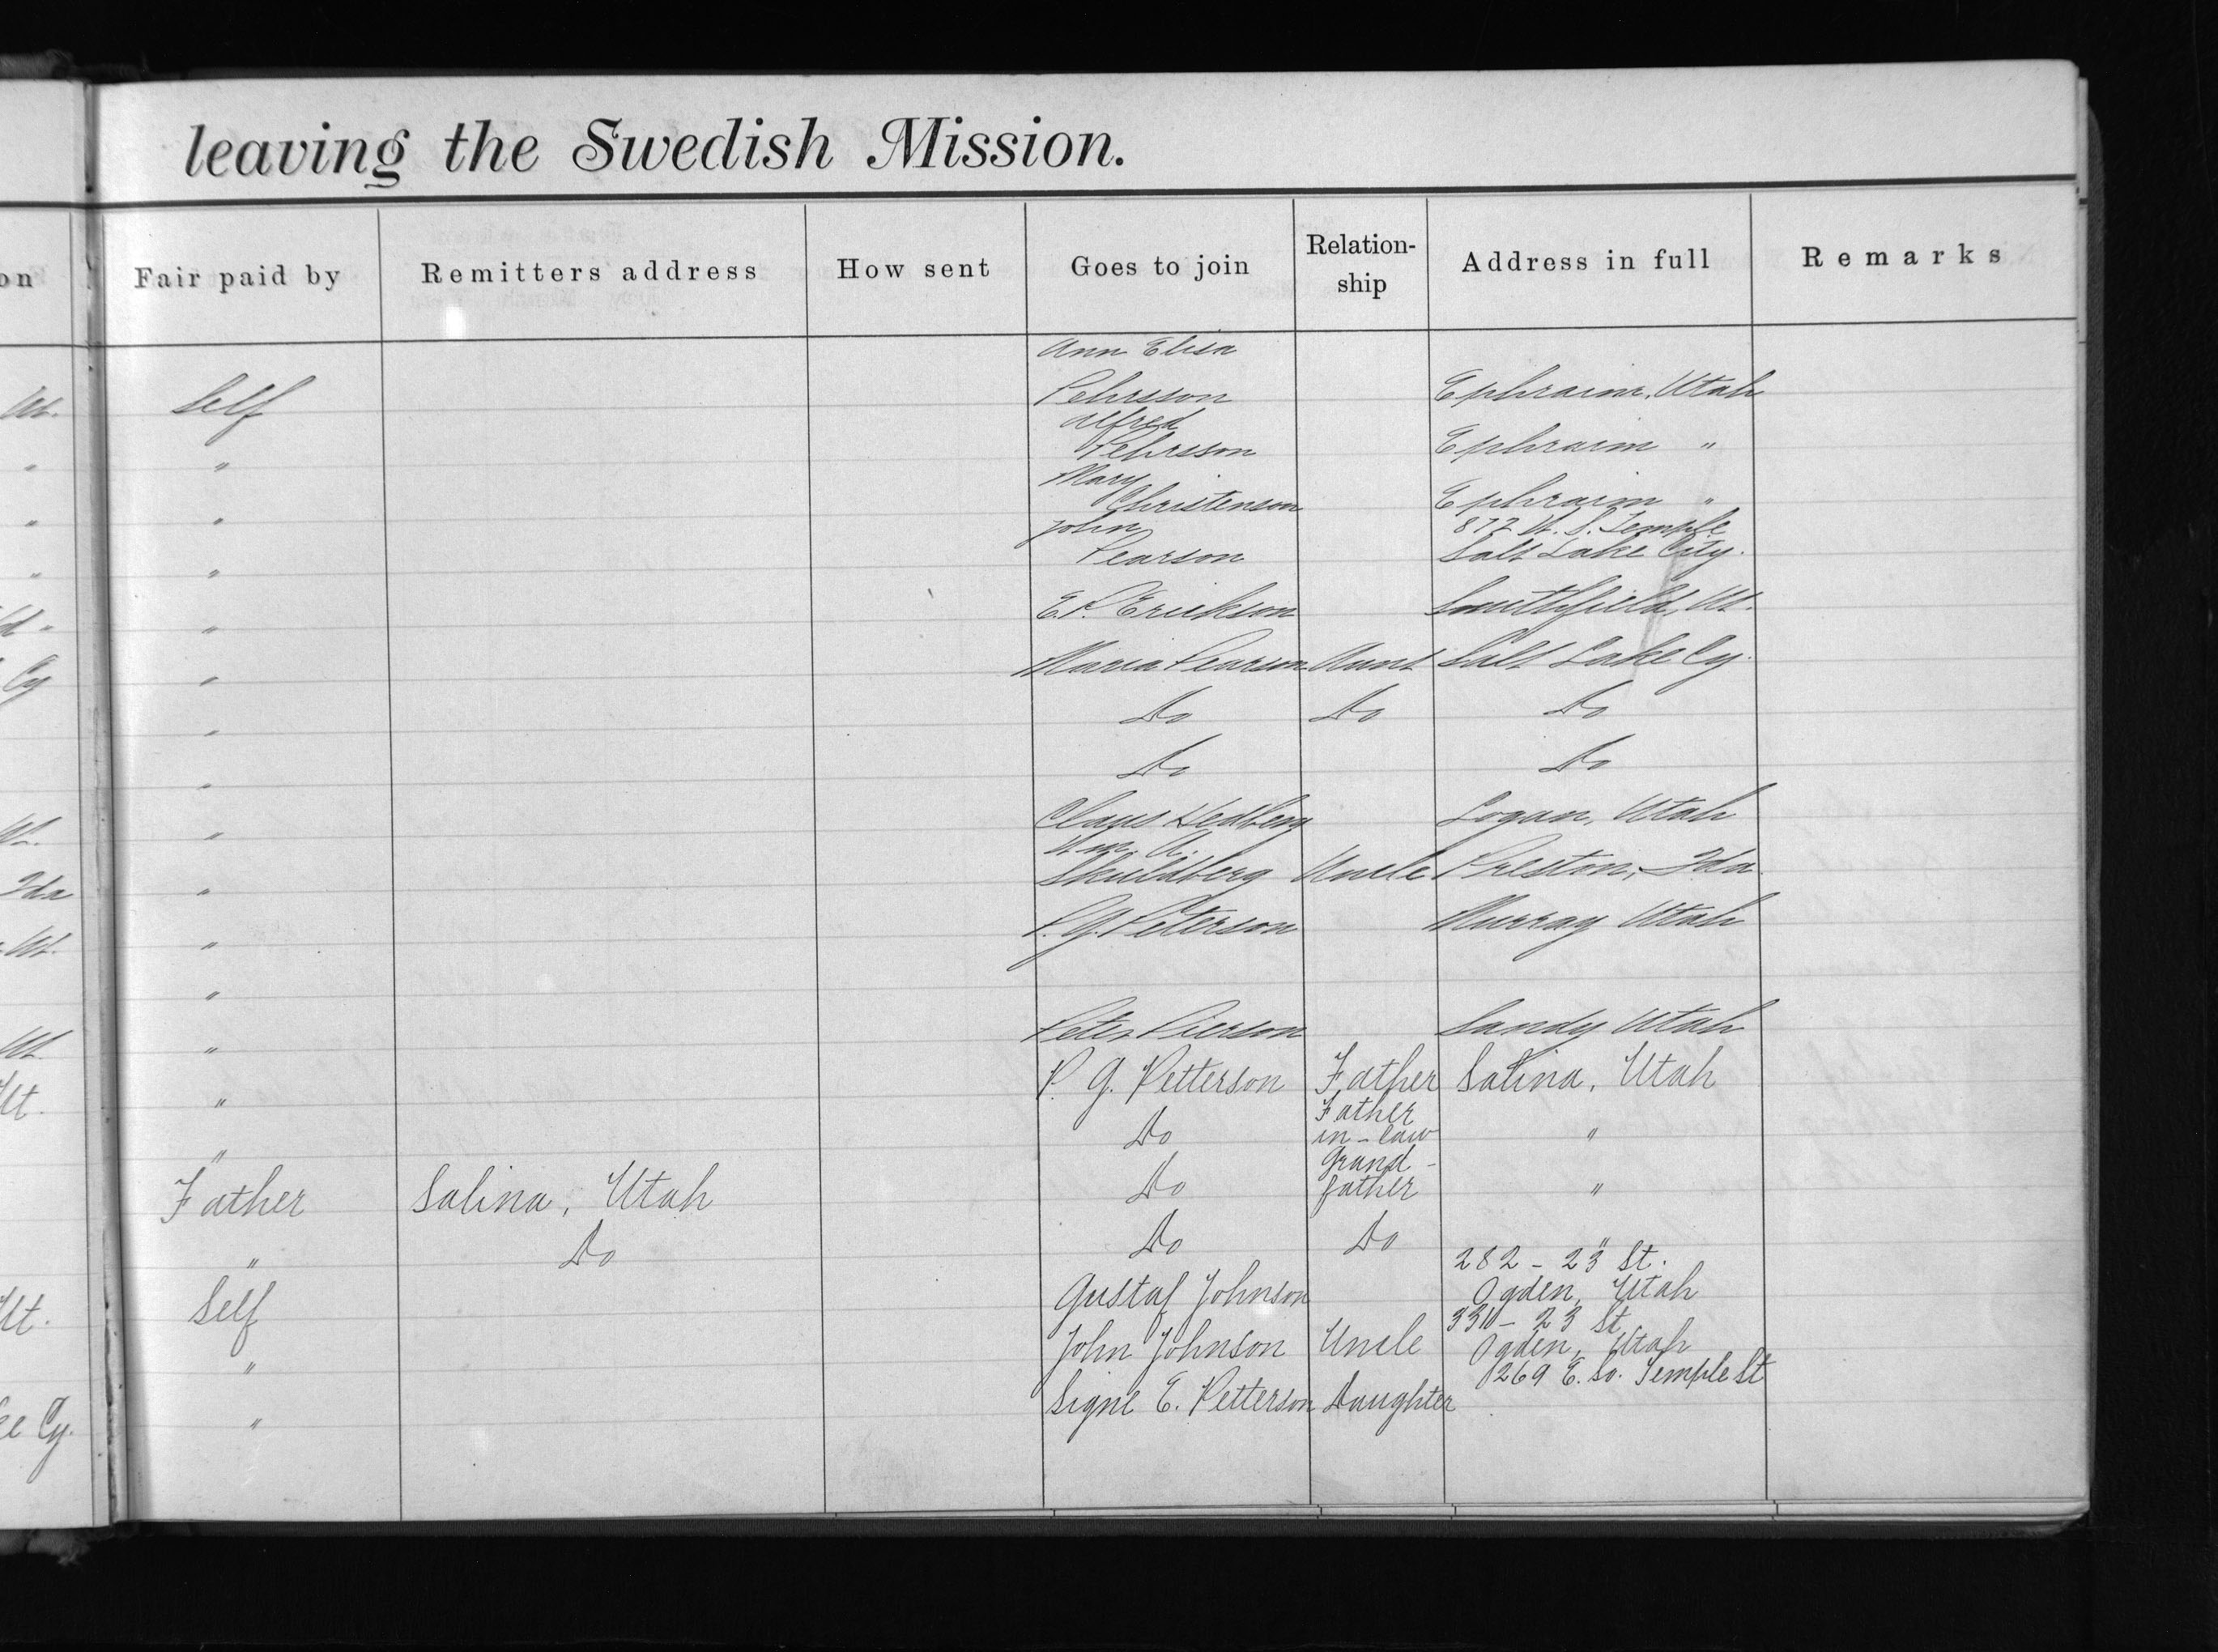 leaving the Swedish Mission.
on Fair paid by Remitters address How sent Goes to join Relation-ship Address in full Remarks
Ann Elisa
Ut. Self Pehrsson Ephraim, Utah
Alfred
" " Pehrsson Ephraim "
Mary
" " Christenson Ephraim "
John 872 W. S. Temple
" " Pearson Salt Lake City.
" " E. P. Erickson Smithfield, Ut.
Cy " Maria Pearson Aunt Salt Lake Cy.
" Do Do Do
" Do Do
Ut. " Claus Hedberg Logan, Utah
Wm. A.
Ida " Skuldberg Uncle Preston, Ida
Ut. " P. G. Peterson Murray Utah
"
Ut " Peter Pierson Sandy Utah
Ut. " P. G. Petterson Father Salina, Utah
Father
" Do in-law "
Grand-
Father Salina, Utah Do father "
" Do Do Do "
282 - 23 St.
Ut. Self Gustaf Johnson Ogden, Utah
3310 - 23 St
" John Johnson Uncle Ogden, Utah
1269 E. So. Temple St
Cy. " Signe E. Petterson Daughter